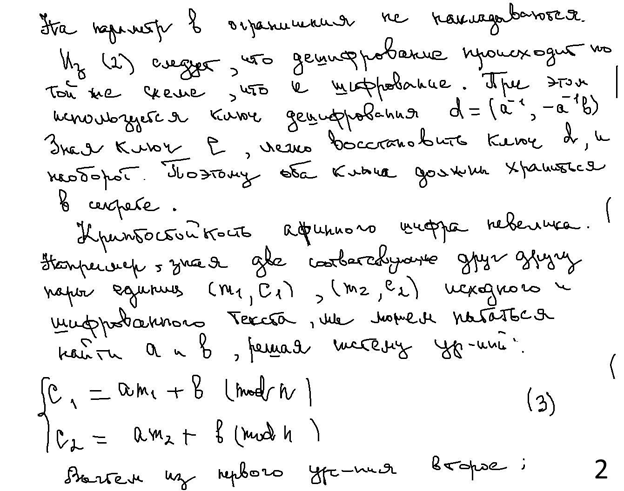 На параметр в ограничения не накладываются.
Из (2) следует, что дешифрование происходит по
той же схеме, что и шифрование. При этом
используется ключ дешифрования d = (a⁻¹, -a⁻¹b)
Зная ключ e, легко восстановить ключ d, и
наоборот. Поэтому оба ключа должны храниться
в секрете.
Криптостойкость афинного шифра невелика.
Например, зная две соответствующие друг другу
пары единиц (m₁, c₁), (m₂, c₂) исходного и
шифрованного текста, мы можем пытаться
найти a и b, решая систему ур-ний:
c₁ = am₁ + b (mod n)
(3)
c₂ = am₂ + b (mod n)
Вычтем из первого ур-ния второе:
2